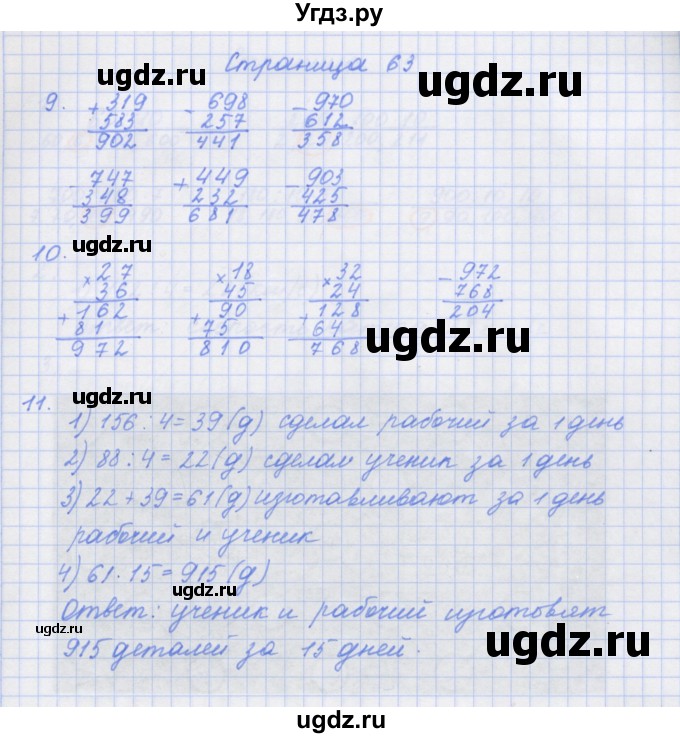 Угдз.ру
Страница 63
9. +319 -698 -970
583 257 612
902 441 358
-747 +449 -903
348 232 425
399 681 478
10.
×27 ×18 ×32 -972
36 45 24 768
+162 +90 +128 204
81 75 64
972 810 768
11.
1) 156:4=39(д) сделал рабочий за 1 день
2) 88:4=22(д) сделал ученик за 1 день
3) 22+39=61(д) изготавливают за 1 день
рабочий и ученик
4) 61·15=915(д)
Ответ: ученик и рабочий изготовят
915 деталей за 15 дней.
ugdz.ru
ugdz.ru
ugdz.ru
ugdz.ru
ugdz.ru
ugdz.ru
ugdz.ru
ugdz.ru
ugdz.ru
ugdz.ru
ugdz.ru